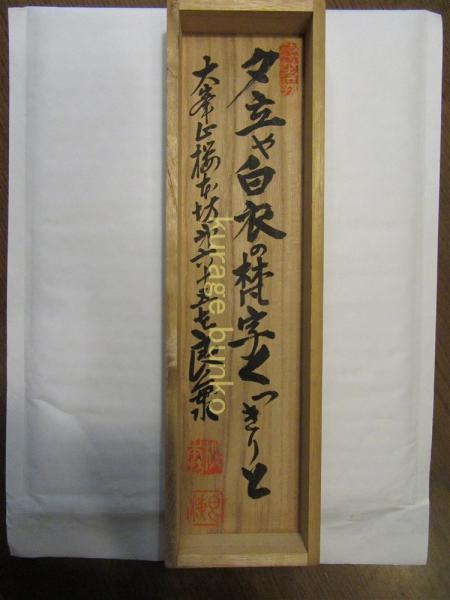 夕立や白衣の梵字くつきりと
大峯山桜本坊第六十五世良兼
kurage bunko